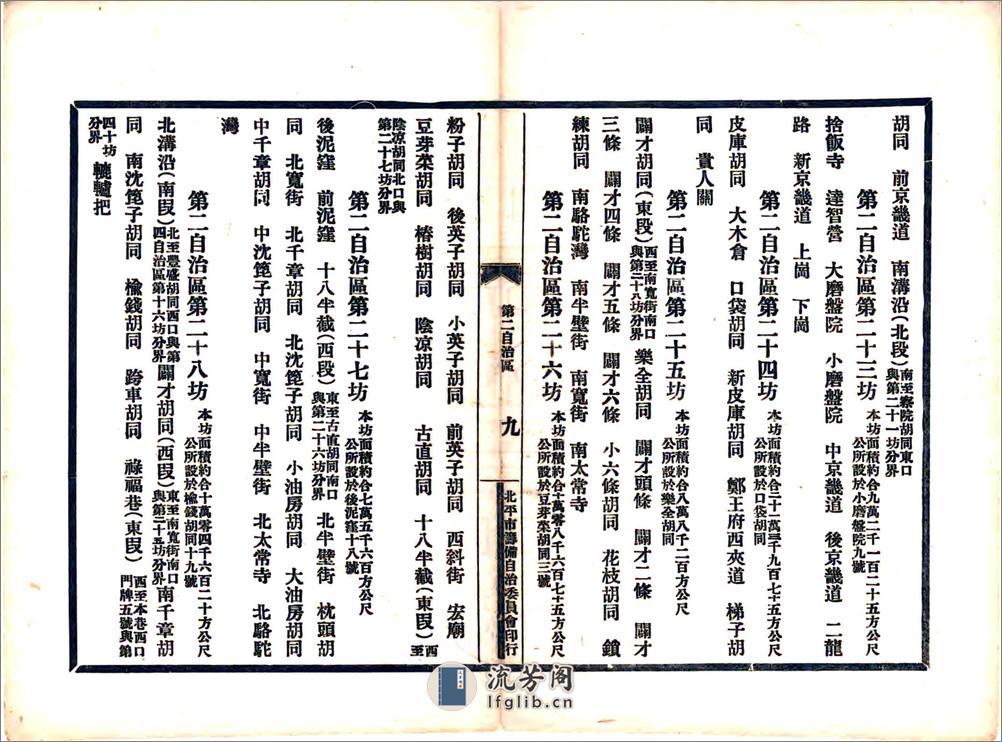 胡同　前京畿道　南溝沿（北段）南至察院胡同東口
與第二十一坊分界
第二自治區第二十三坊　本坊面積約合九萬二千一百二十五方公尺
公所設於小磨盤院九號
捨飯寺　達智營　大磨盤院　小磨盤院　中京畿道　後京畿道　二龍
路　新京畿道　上崗　下崗
第二自治區第二十四坊　本坊面積約合三十一萬三千九百七十五方公尺
公所設於口袋胡同
皮庫胡同　大木倉　口袋胡同　新皮庫胡同　鄭王府西夾道　梯子胡
同　貴人關
第二自治區第二十五坊　本坊面積約合八萬八千二百方公尺
公所設於樂全胡同
闢才胡同（東段）西至南寬街南口
與第二十八坊分界　樂全胡同　闢才頭條　闢才二條　闢才
三條　闢才四條　闢才五條　闢才六條　小六條胡同　花枝胡同　鎖
練胡同　南駱駝灣　南半壁街　南寬街　南太常寺
第二自治區第二十六坊　本坊面積約合十萬零八千六百七十五方公尺
公所設於豆芽菜胡同三號
第二自治區　九
北平市籌備自治委員會印行
粉子胡同　後英子胡同　小英子胡同　前英子胡同　西斜街　宏廟
豆芽菜胡同　椿樹胡同　陰凉胡同　古直胡同　十八半截（東段）西至
陰凉胡同北口與
第二十七坊分界
第二自治區第二十七坊　本坊面積約合七萬五千六百方公尺
公所設於後泥窪十八號
後泥窪　前泥窪　十八半截（西段）東至古直胡同南口
與第二十六坊分界　北半壁街　枕頭胡
同　北寬街　北千章胡同　北沈篦子胡同　小油房胡同　大油房胡同
中千章胡同　中沈篦子胡同　中寬街　中半壁街　北太常寺　北駱駝
灣
第二自治區第二十八坊　本坊面積約合十萬零四千六百二十方公尺
公所設於榆錢胡同十九號
北溝沿（南段）北至豐盛胡同西口與第
四自治區第十六坊分界　闢才胡同（西段）東至南寬街南口
與第二十五坊分界　南千章胡
同　南沈篦子胡同　榆錢胡同　跨車胡同　祿福巷（東段）西至本巷西口
門牌五號與第
四十坊
分界　轆轤把
流芳阁
lfglib.cn